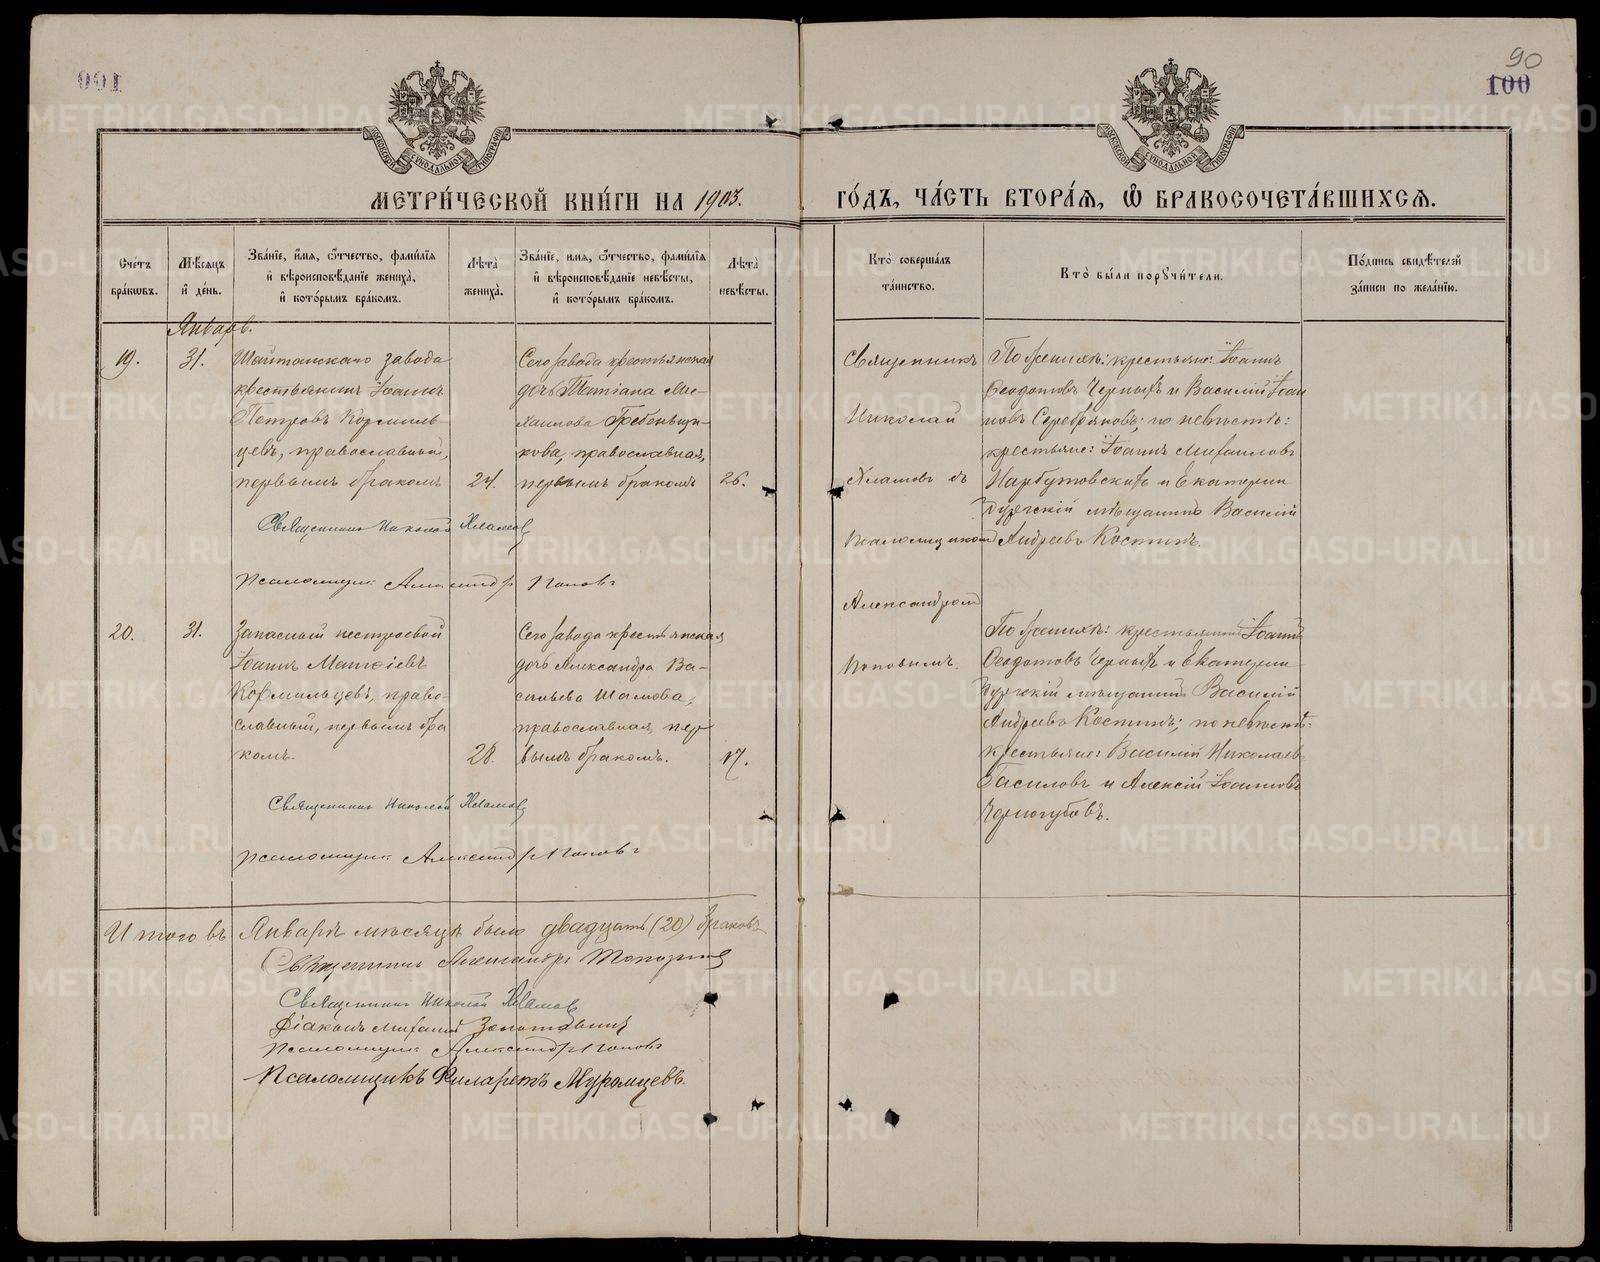 90
100
МЕТРИ́ЧЕСКОЙ КНИ́ГИ НА 1903.
ГО́ДЪ, ЧА́СТЬ ВТОРА́Я, Ѿ БРАКОСОЧЕТА́ВШИХСЯ.
Сче́тъ бра́кωвъ.
Мѣ́сяцъ и҆ де́нь.
Зва́нїе, и҆́мя, ѻ҆́тчество, фами́лїя и҆ вѣроисповѣ́данїе жениха̀, и҆ кото́рымъ бра́комъ.
Лѣ́та жениха̀.
Зва́нїе, и҆́мя, ѻ҆́тчество, фами́лїя и҆ вѣроисповѣ́данїе невѣ́сты, и҆ кото́рымъ бра́комъ.
Лѣ́та невѣ́сты.
Кто̀ соверша́лъ та́инство.
Кто̀ бы́ли порꙋчи́тели.
По́дпись свидѣ́телей за́писи по жела́нїю.
Январь.
19.
31.
Шайтанскаго завода
крестьянинъ Іоаннъ
Петровъ Кормиль-
цевъ, православный,
первымъ бракомъ
24.
Сего завода крестьянская
дочь Татіана Ми-
хаилова Гребеньщи-
кова, православная,
первымъ бракомъ
26.
Священникъ Николай Хламовъ
Псаломщикъ Александръ Поповъ
Священникъ
Николай
Хламовъ съ
псаломщикомъ
Александромъ
Поповымъ.
По женихѣ: крестьяне: Іоаннъ
Ѳеодотовъ Черныхъ и Василій Іоан
новъ Серебряковъ; по невѣстѣ:
крестьяне: Іоаннъ Михаиловъ
Нарбутовскихъ и Екатерин
бургскій мѣщанинъ Василій
Андреевъ Костинъ.
20.
31.
Запасный нестроевой
Іоаннъ Матѳіевъ
Кормильцевъ, право-
славный, первымъ бра
комъ.
28.
Сего завода крестьянская
дочь Александра Ва-
сильева Шамова,
православная, пер
вымъ бракомъ.
17.
Священникъ Николай Хламовъ
Псаломщикъ Александръ Поповъ
По женихѣ: крестьянинъ Іоаннъ
Ѳеодотовъ Черныхъ и Екатерин
бургскій мѣщанинъ Василій
Андреевъ Костинъ; по невѣстѣ:
крестьяне: Василій Николаевъ
Гасиловъ и Алексій Іоанновъ
Черногубовъ.
Итого въ Январѣ мѣсяцѣ было двадцать (20) браковъ
Священникъ Александръ Топорковъ
Священникъ Николай Хламовъ
Діаконъ Михаилъ
Псаломщикъ Александръ Поповъ
Псаломщикъ Филаретъ Муромцевъ.
METRIKI.GASO-URAL.RU